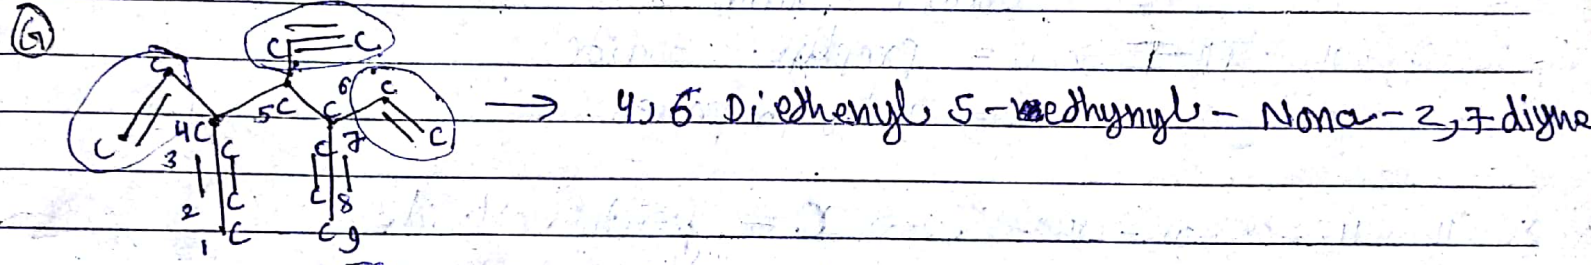 G
C C
C 6 C
4C 5C C C
C 3 C C 7
C C 8
2
1 C C 9
→ 4,6 Diethenyl, 5-ethynyl - Nona-2,7-diyne